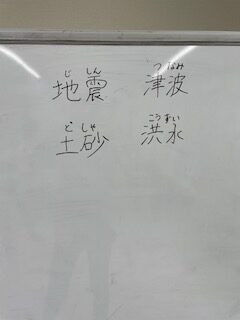 じ しん つなみ
地震 津波
ど しゃ こうずい
土砂 洪水